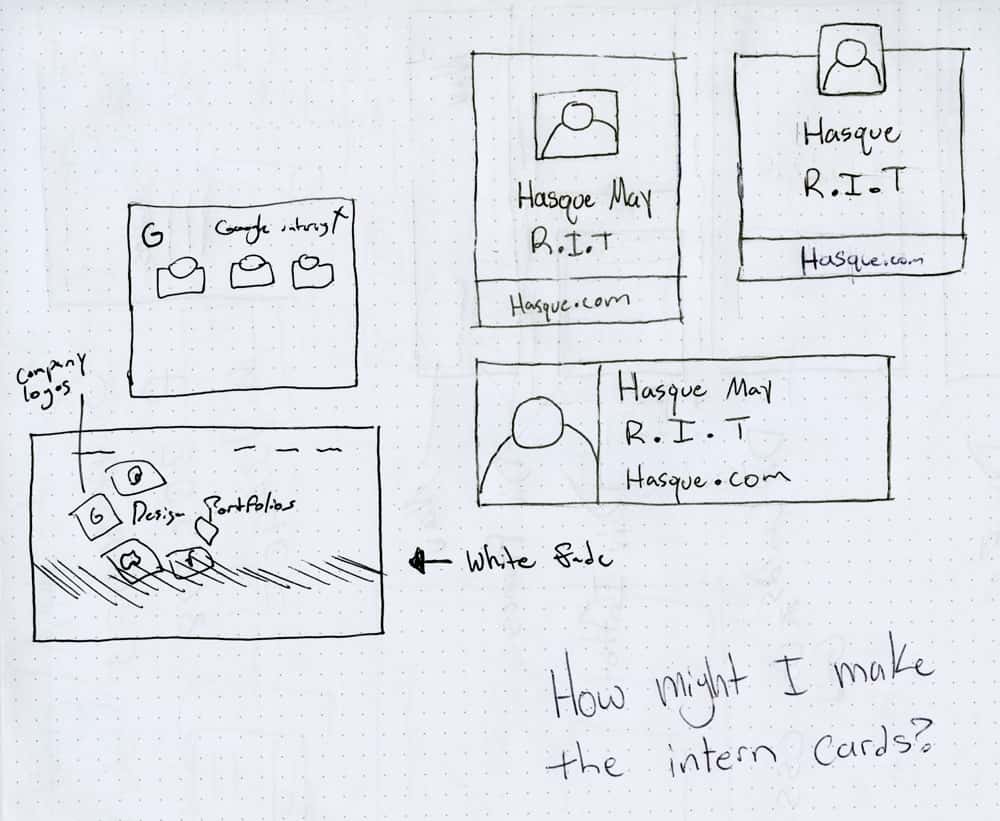 Hasque May
R.I.T
Hasque.com
Hasque
R.I.T
Hasque.com
G
Google
Company
logos
G
Design Portfolios
Hasque May
R.I.T
Hasque.com
White fade
How might I make
the intern cards?